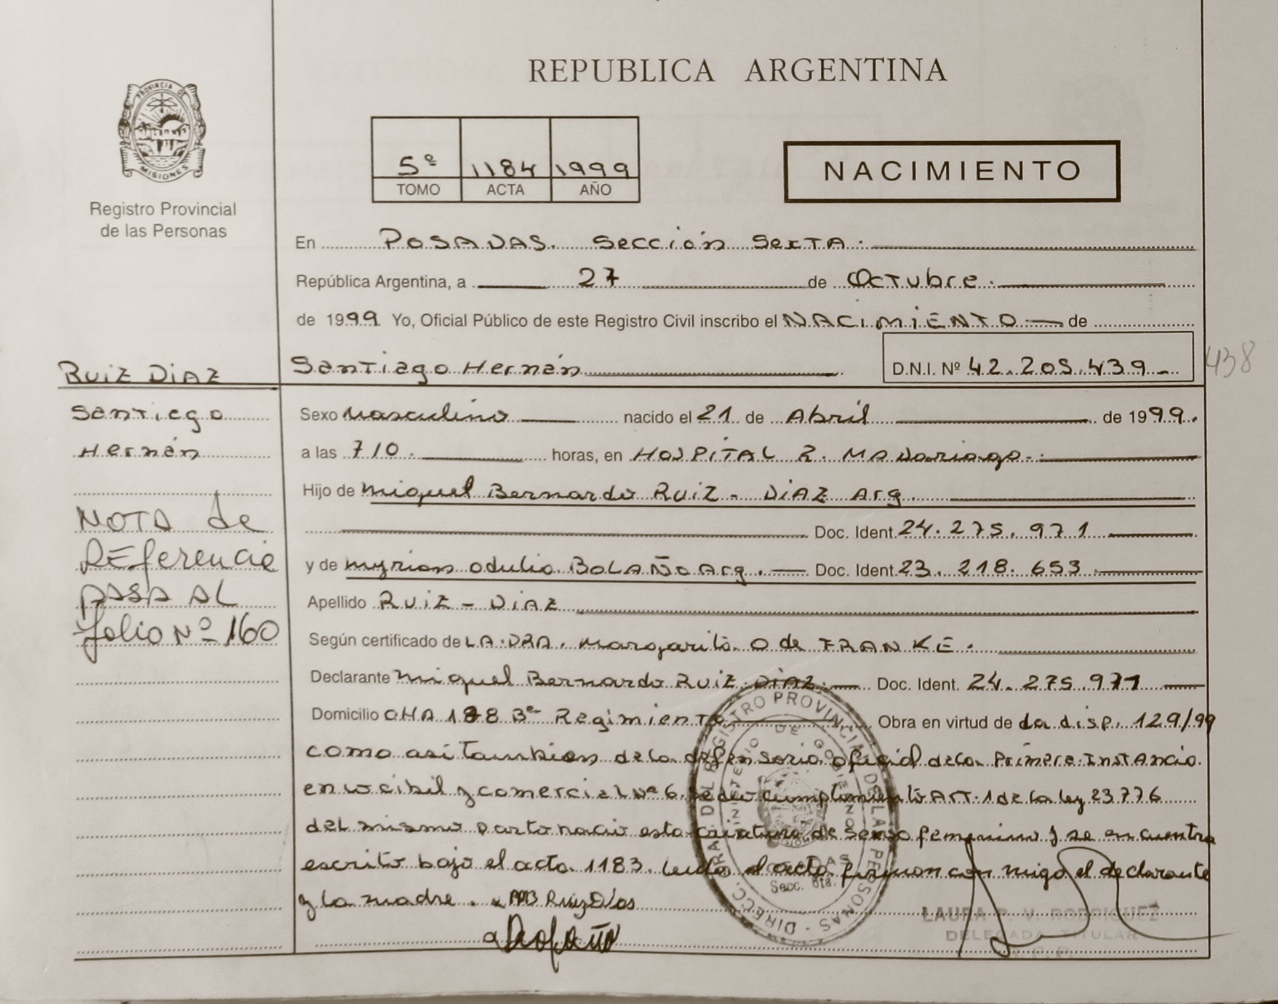 REPUBLICA ARGENTINA
PROVINCIA D
MISIONES
Registro Provincial
de las Personas
5º 1184 1999
TOMO ACTA AÑO
NACIMIENTO
En POSADAS. Sección Sexta.
República Argentina, a 27 de Octubre.
de 1999 Yo, Oficial Público de este Registro Civil inscribo el NACIMIENTO de
Santiago Hernán D.N.I. Nº 42.205.439 438
Ruiz Diaz
Santiego
Hernán
NOTA de
Referencia
PASA AL
folio Nº 160
Sexo masculino nacido el 21 de Abril de 1999.
a las 710. horas, en HOSPITAL R. Madariaga.
Hijo de miguel Bernardo Ruiz - Diaz Arg
Doc. Ident. 24.275.971
y de myrian odulia BOLAÑO Arg. Doc. Ident. 23.218.653
Apellido Ruiz - Diaz
Según certificado de LA DRA. Margarita O de FRANKE.
Declarante miguel Bernardo Ruiz Diaz Doc. Ident. 24.275.971
Domicilio CHA 188 Bº Regimiento Obra en virtud de la disp. 129/99
como asi tambien de la defensoria oficial de la Primera Instancia
en lo cibil y comercial Nº 6. se dio cumplimiento Art. 1 de la ley 23.776
del mismo parto nacio esta criatura de sexo femenino y se encuentra
escrito bajo el acta 1183. leida el acta firman con migo el declarante
y la madre. MB Ruiz Dias
DIRECC. GRAL DEL REGISTRO PROVINCIAL DE LAS PERSONAS
MINISTERIO DE GOBIERNO
POSADAS
Secc. 6ta.
LAURA R. V. RODRIGUEZ
DELEGADA TITULAR